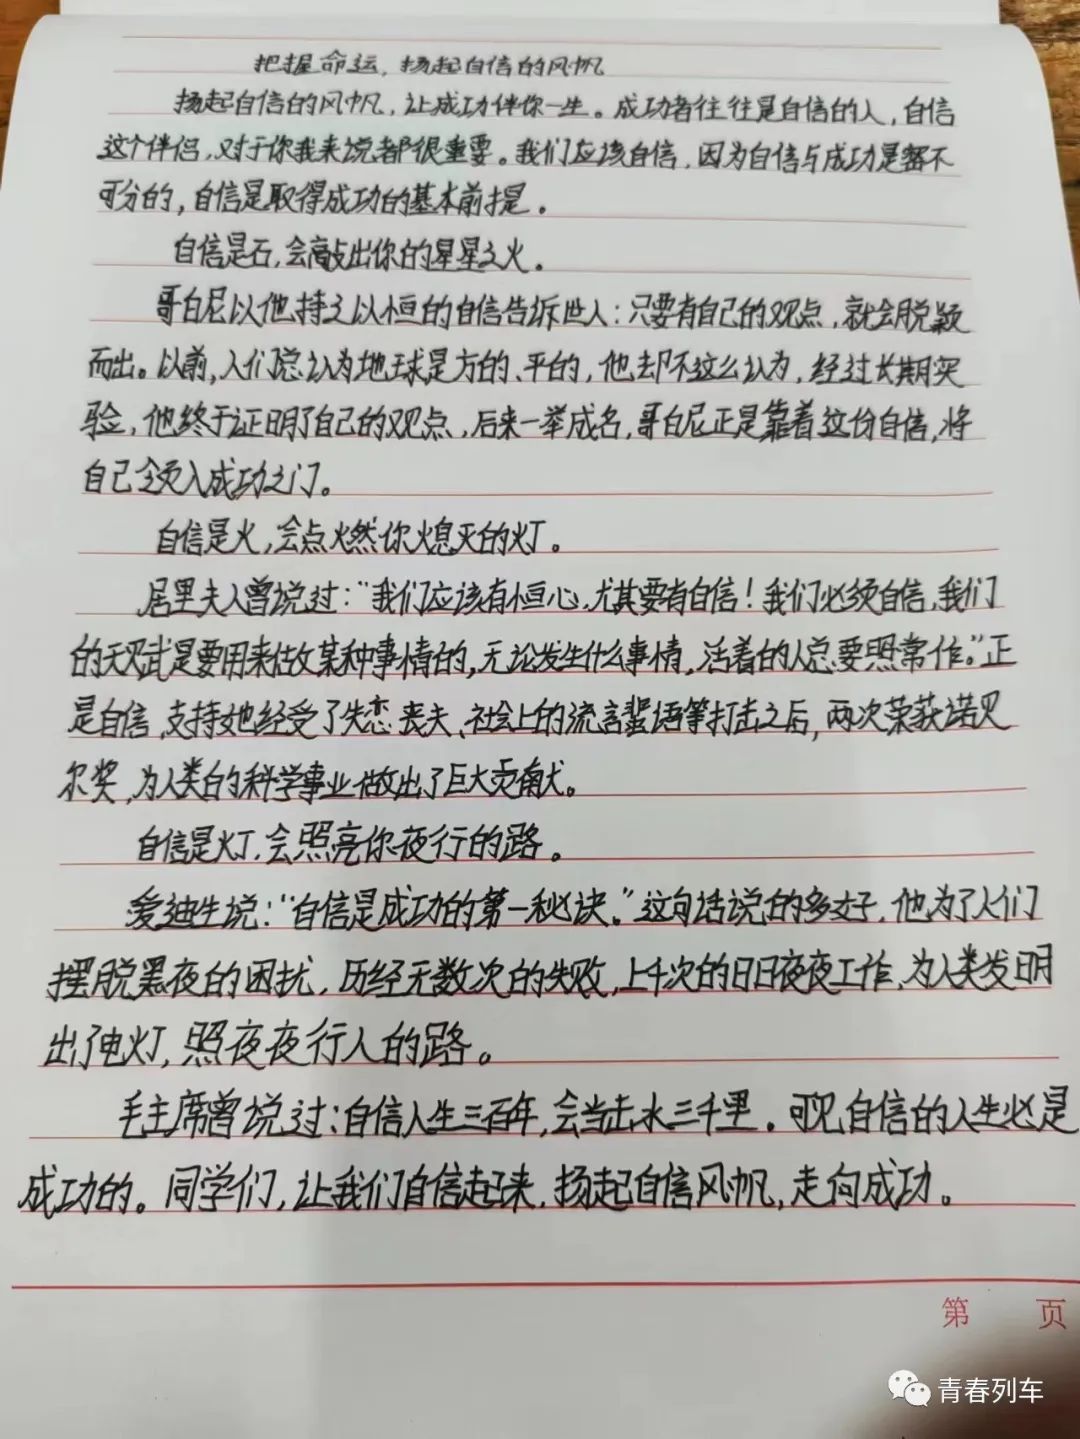 把握命运，扬起自信的风帆
扬起自信的风帆，让成功伴你一生。成功者往往是自信的人，自信
这个伴侣，对于你我来说都很重要。我们应该自信，因为自信与成功是密不
可分的，自信是取得成功的基本前提。
自信是石，会敲出你的星星之火。
哥白尼以他持之以恒的自信告诉世人：只要有自己的观点，就会脱颖
而出。以前，人们总认为地球是方的、平的，他却不这么认为，经过长期实
验，他终于证明了自己的观点，后来一举成名，哥白尼正是靠着这份自信，将
自己领入成功之门。
自信是火，会点燃你熄灭的灯。
居里夫人曾说过：“我们应该有恒心，尤其要有自信！我们必须自信，我们
的天赋是要用来做某种事情的，无论发生什么事情，活着的人总要照常作。”正
是自信，支持她经受了失恋、丧夫、社会上的流言蜚语等打击之后，两次荣获诺贝
尔奖，为人类的科学事业做出了巨大贡献。
自信是灯，会照亮你夜行的路。
爱迪生说：“自信是成功的第一秘诀。”这句话说的多好，他为了人们
摆脱黑夜的困扰，历经无数次的失败，上千次的日日夜夜工作，为人类发明
出了电灯，照夜夜行人的路。
毛主席曾说过：自信人生三百年，会当击水三千里。可见自信的人生必是
成功的。同学们，让我们自信起来，扬起自信风帆，走向成功。
第 页
青春列车